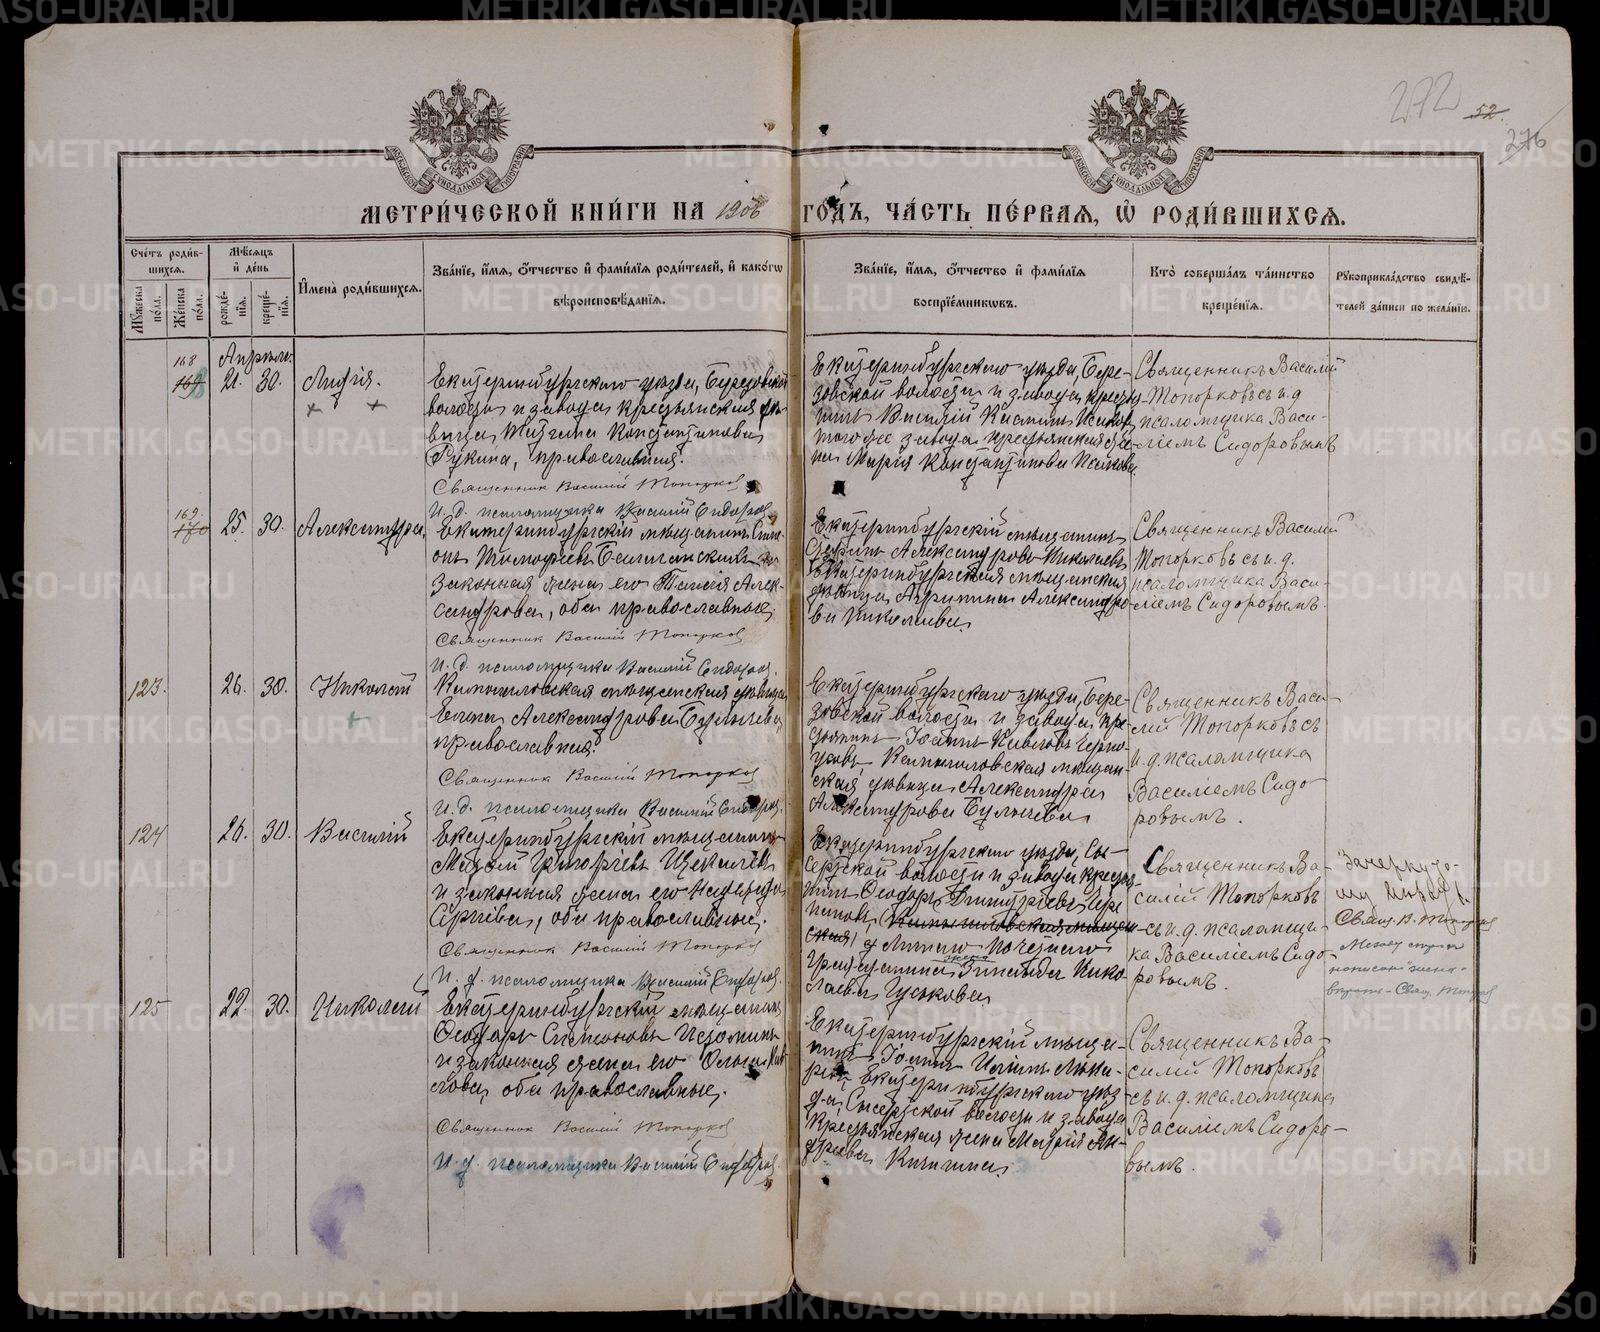 METRIKI.GASO-URAL.RU
272
52.
276
МЕТРИ́ЧЕСКОЙ КНИ́ГИ НА 1906 ГО́ДЪ, ЧА́СТЬ ПЕ́РВАЯ, Ѡ҆ РОДИ́ВШИХСЯ.
Сче́тъ роди́вшихся.
Мꙋ́жеска по́ла.
Же́нска по́ла.
Мѣ́сяцъ и҆ де́нь
рожде́нїя.
креще́нїя.
И҆мена̀ роди́вшихся.
Зва́нїе, и҆́мя, ѻ҆́тчество и҆ фами́лїя роди́телей, и҆ како́гѡ
вѣроисповѣ́данїя.
Зва́нїе, и҆́мя, ѻ҆́тчество и҆ фами́лїя
воспрїе́мниковъ.
Кто̀ соверша́лъ та́инство
креще́нїя.
Рꙋкоприкла́дство свидѣ́-
телей за́писи по жела́нїю.
Апрѣль
168
169
21. 30. Лидія.
Екатеринбургскаго уѣзда, Березовской
волости и завода крестьянская дѣ-
вица Татіана Константинова
православная.
Священник Василий Топорков
И. д. псаломщика Василий Сидоров
Екатеринбургскаго уѣзда, Бере-
зовской волости и завода крестья-
нинъ Василій
того же завода крестьянская
Марія Константинова
Священникъ Василій
Топорковъ съ и. д.
псаломщика Васи-
ліемъ Сидоровымъ
169.
170
25. 30. Александра,
Екатеринбургскій мѣщанинъ Симе-
онъ Тимофеевъ и
законная жена его Таисія Алек-
сандрова, оба православные.
Священник Василий Топорков
И. д. псаломщика Василий Сидоров
Екатеринбургскій мѣщанинъ
Александровъ Николаевъ
Екатеринбургская мѣщанская
дѣвица Агриппина Александро-
ва Николаева
Священникъ Василій
Топорковъ съ и. д.
псаломщика Васи-
ліемъ Сидоровымъ.
123. 26. 30. Николай
Камышловская мѣщанская дѣвица
Елена Александрова Булычева,
православная.
Священник Василий Топорков
И. д. псаломщика Василий Сидоров.
Екатеринбургскаго уѣзда, Бере-
зовской волости и завода кре-
стьянинъ Іоаннъ
Камышловская мѣщан-
ская дѣвица Александра
Александрова Булычева
Священникъ Васи-
лій Топорковъ съ
и. д. псаломщика
Василіемъ Сидо-
ровымъ.
124 26. 30. Василій
Екатеринбургскій мѣщанинъ
Матвѣй Григорьевъ
и законная жена его Надежда
Сергіева, оба православные.
Священник Василий Топорков
И. д. псаломщика Василий Сидоров.
Екатеринбургскаго уѣзда, Сы-
сертской волости и завода крестья-
нинъ Ѳеодоръ Димитріевъ Чере
пановъ, Камышловская мѣщан-
ская, и Личнаго почетнаго
гражданина жена Зинаида Нико-
лаева Гуськова
Священникъ Ва-
силій Топорковъ
съ и. д. псаломщи-
ка Василіемъ Сидо-
ровымъ.
Зачеркнуто-
му
Свящ. В. Топорков
Между строк
написано "жена"
верить - Свящ. Топорков
125 29. 30. Николай
Екатеринбургскій мѣщанинъ
Ѳеодоръ Симеоновъ
и законная жена его Ольга
оба православные.
Священник Василий Топорков
И. д. псаломщика Василий Сидоров.
Екатеринбургскій мѣща-
нинъ Іоаннъ
Екатеринбургскаго уѣз-
да, Сысертской волости и завода
крестьянская жена Марія Ан-
дреева Кичигина
Священникъ Ва-
силій Топорковъ
съ и. д. псаломщика
Василіемъ Сидоро-
вымъ.